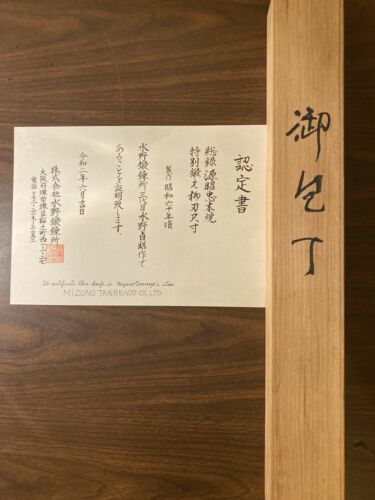 御包丁
認定書
総銀 源昭忠本焼
特別鍛え柳刃尺寸
製作 昭和六十年頃
水野鍛錬所三代目水野昭
あることを証明致します。
令和二年六月吉日
株式会社水野鍛錬所
大阪府堺市堺区桜之町西
電話
MIZUNO TANRENJO CO., LTD.